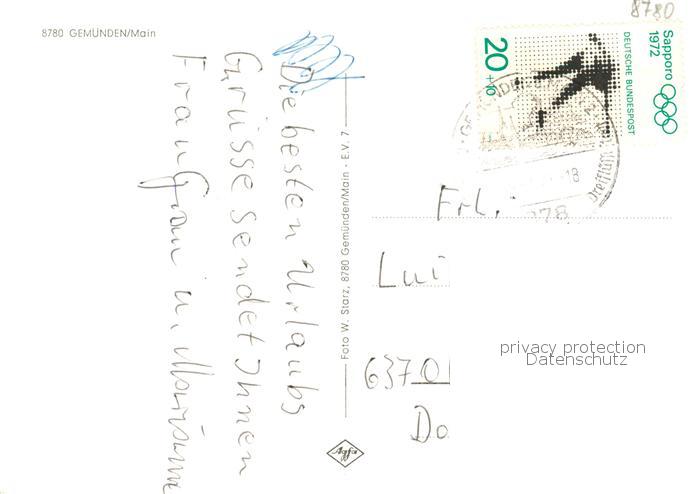 8780
8780 GEMÜNDEN/Main
Die besten Urlaubs
Grüsse sendet Ihnen
Frau Grau u.
Foto W. Starz, 8780 Gemünden/Main - E.V. 7
Agfa
Sapporo
1972
DEUTSCHE BUNDESPOST
20+10
18
878
Frl.
Lui
6370
Do
privacy protection
Datenschutz